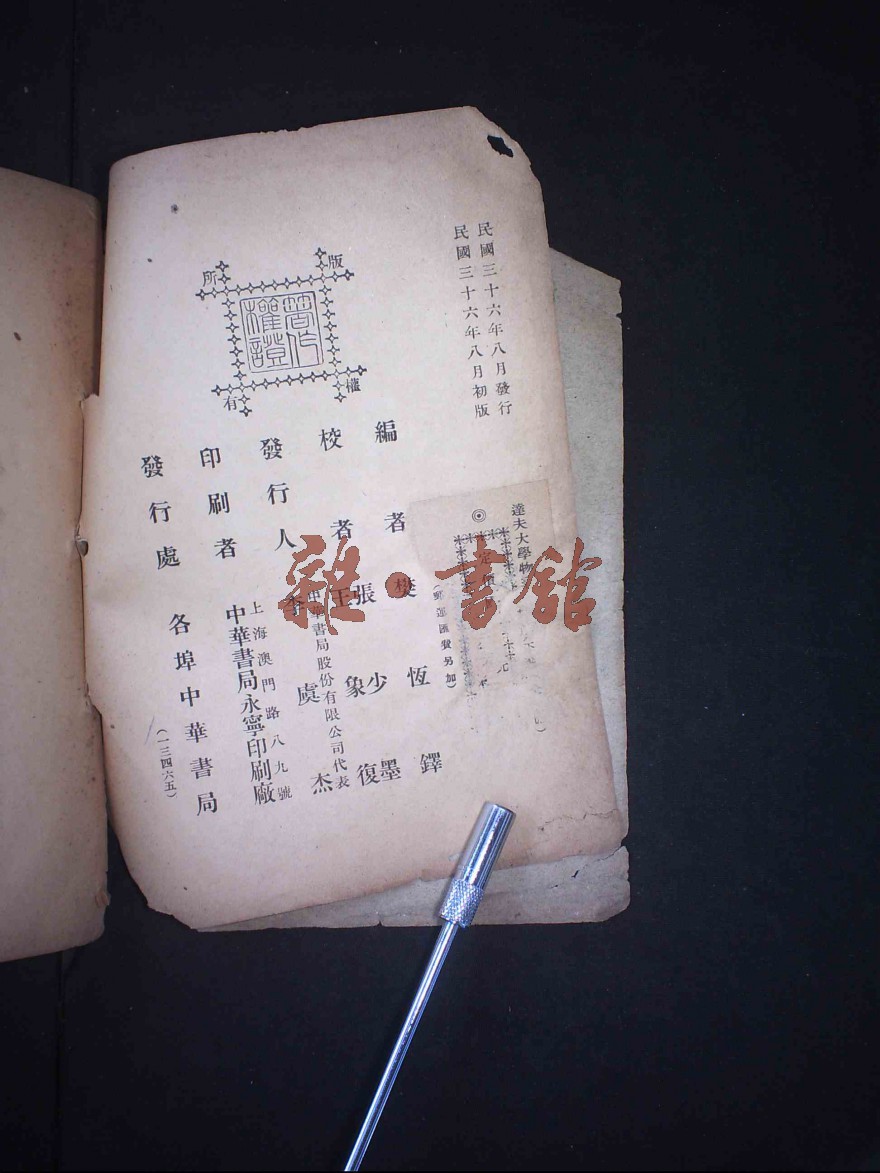 民國三十六年八月發行
民國三十六年八月初版
達夫大學物
定價
(郵運匯費另加)
編者 樊恆鐸
校者 張少墨 王象復
發行人 李虞杰
中華書局股份有限公司代表
印刷者 中華書局永寧印刷廠
上海澳門路八九號
發行處 各埠中華書局
(一三四六五)
版權所有
著作權證
雜·書館